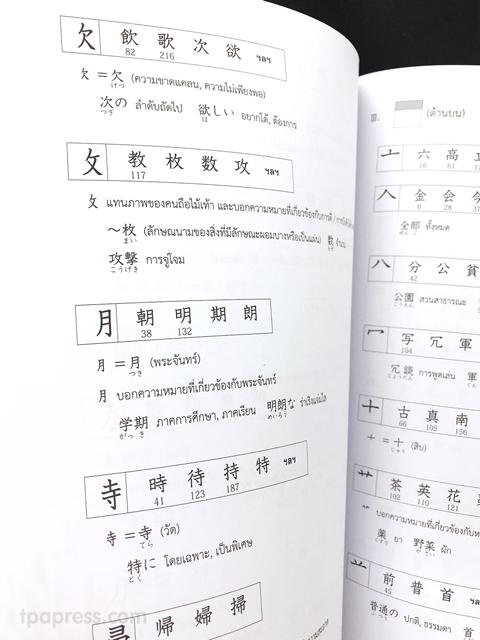 欠 飲 歌 次 欲 ฯลฯ
82 216
欠 = 欠 (ความขาดแคลน, ความไม่เพียงพอ)
けつ
次の ลำดับถัดไป 欲しい อยากได้, ต้องการ
つぎ ほ
攵 教 枚 数 攻 ฯลฯ
117
攵 แทนภาพของคนถือไม้เท้า และบอกความหมายที่เกี่ยวข้องกับการตี
～枚 (ลักษณนามของสิ่งที่มีลักษณะผอมบางหรือเป็นแผ่น) 数 จำนวน
まい かず
攻撃 การจู่โจม
こうげき
月 朝 明 期 朗
38 132
月 = 月 (พระจันทร์)
つき
月 บอกความหมายที่เกี่ยวข้องกับพระจันทร์
学期 ภาคการศึกษา, ภาคเรียน 明朗な ร่าเริงแจ่มใส
がっ き めいろう
寺 時 待 持 特 ฯลฯ
41 123 187
寺 = 寺 (วัด)
てら
特に โดยเฉพาะ, เป็นพิเศษ
とく
帚 帰 婦 掃
III. (ด้านบน)
亠 六 高
16 61
𠆢 金 会 今
6 28
全部 ทั้งหมด
ぜん ぶ
八 分 公 貧
42
公園 สวนสาธารณะ
こうえん
冖 写 冗 軍
104
冗談 การพูดเล่น 軍
じょうだん ぐん
十 古 真 南
66 105 156
十 = 十 (สิบ)
じゅう
艹 茶 英 花
102 110 121
艹 บอกความหมายที่เกี่ยวข้องกับ
薬 ยา 野菜 ผัก
くすり や さい
前 普 首
45
普通の ปกติ, ธรรมดา 首
ふ つう
tpapress.com